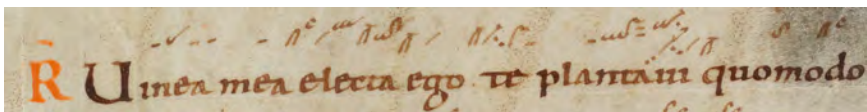 R Uinea mea electa ego te plantaui quomodo